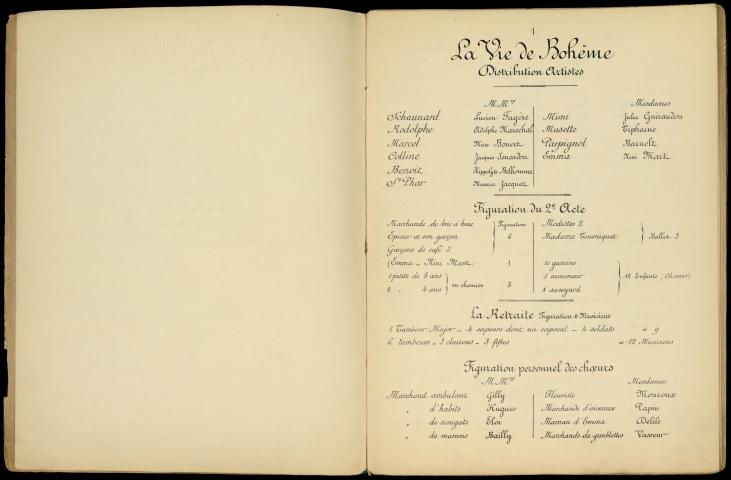 1
La Vie de Bohème
Distribution Artistes
M.Mrs Mesdames
Schaunard Lucien Fugère Mimi Julia Guiraudon
Rodolphe Adolphe Maréchal Musette Tiphaine
Marcel Max Bouvet Parpignol
Colline Jacques Isnardon Emma Nini Mark
Benoit Hippolyte Belhomme
St Phar Maurice Jacquet
Figuration du 2e Acte
Marchands de bric à brac Figuration Modistes 2
Epicier et son garçon 6 Madame Tourniquet Ballet 3
Garçons de café 3
(Emma - Nini Mark 1 10 gamins
1 petite de 5 ans en chemise 3 1 ramoneur 12 Enfants (Chœurs)
2 " 4 ans 1 savoyard
La Retraite Figuration & Musiciens
1 Tambour Major - 4 sapeurs dont un caporal - 4 soldats = 9
6 tambours - 3 clairons - 3 fifres = 12 Musiciens
Figuration personnel des chœurs
M.Mrs Mesdames
Marchand ambulant Gilly Fleuriste Mouroux
" d'habits Hugues Marchande d'oiseaux Papin
" de nougats Eloi Maman d'Emma Delile
" de marrons Bailly Marchande de gimblettes Vasseur